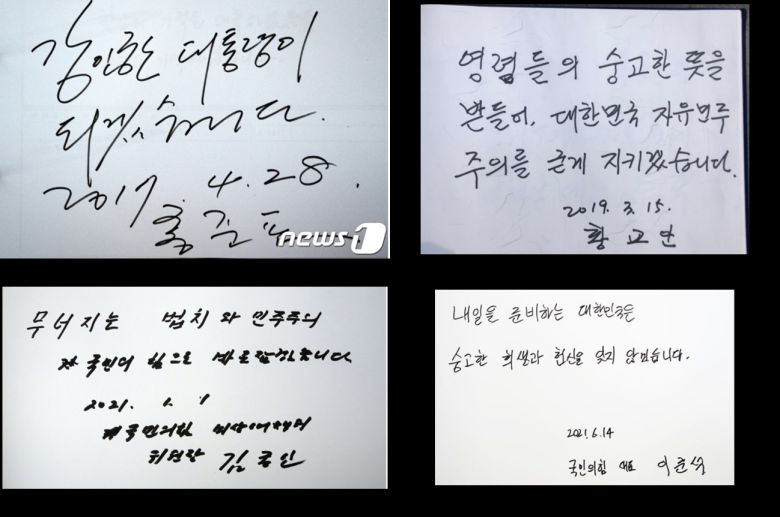 강인한 대통령이
되겠습니다.
2017. 4. 28.
홍준표
news1
영령들의 숭고한 뜻을
받들어, 대한민국 자유민주
주의를 굳게 지키겠습니다.
2019. 3. 15.
황교안
무너지는 법치와 민주주의
국민의 힘으로 바로잡겠습니다
2021. 1. 1
국민의힘
위원장 김종인
내일을 준비하는 대한민국은
숭고한 희생과 헌신을 잊지 않겠습니다.
2021.6.14
국민의힘 대표 이준석